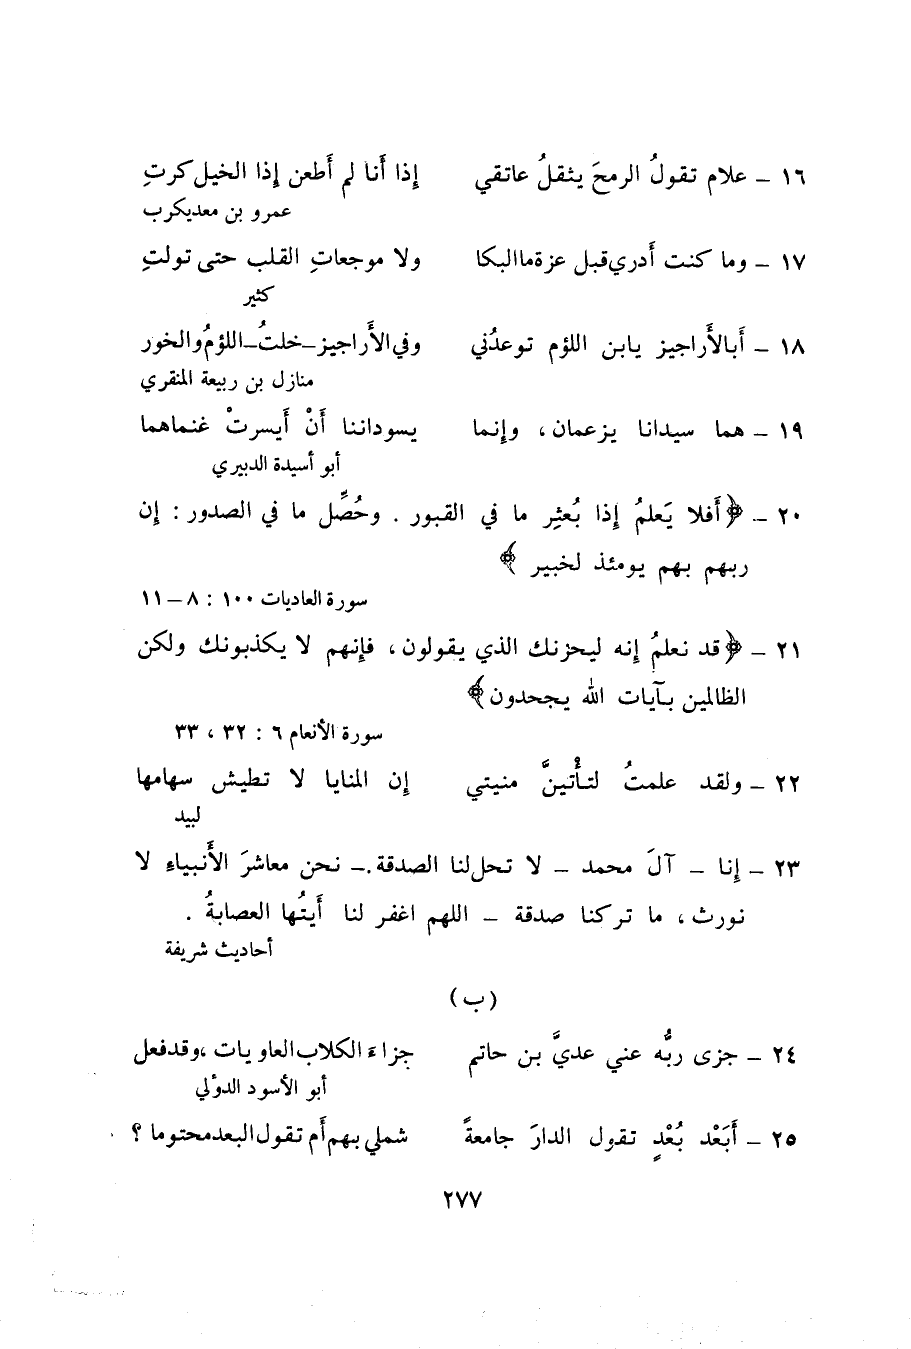 ١٦ – علام تقولُ الرمحَ يثقلُ عاتقي إذا أَنا لم أَطعن إذا الخيل كرتِ
عمرو بن معديكرب
١٧ – وما كنت أَدري قبل عزة ما البكا ولا موجعاتِ القلب حتى تولتِ
كثير
١٨ – أَبالأَراجيز يابن اللؤم توعدُني وفي الأَراجيز – خلتُ – اللؤمُ والخور
منازل بن ربيعة المنقري
١٩ – هما سيدانا يزعمان ، وإنما يسوداننا أَنْ أَيسرتْ غنماهما
أبو أسيدة الدبيري
٢٠ – ﴿ أَفلا يَعلمُ إذا بُعثِر ما في القبور . وحُصِّل ما في الصدور : إن
ربهم بهم يومئذ لخبير ﴾
سورة العاديات ١٠٠ : ٨ – ١١
٢١ – ﴿ قد نعلمُ إنه ليحزنك الذي يقولون ، فإنهم لا يكذبونك ولكن
الظالمين بآيات الله يجحدون ﴾
سورة الأنعام ٦ : ٣٢ ، ٣٣
٢٢ – ولقد علمتُ لتأْتينَّ منيتي إن المنايا لا تطيش سهامها
لبيد
٢٣ – إنا – آلَ محمد – لا تحل لنا الصدقة . – نحن معاشرَ الأَنبياء لا
نورث ، ما تركنا صدقة – اللهم اغفر لنا أَيتُها العصابةُ .
أحاديث شريفة
(ب)
٢٤ – جزى ربُّه عني عديَّ بن حاتم جزاءَ الكلاب العاويات ، وقد فعل
أبو الأسود الدؤلي
٢٥ – أَبَعْد بُعْدٍ تقول الدارَ جامعةً شملي بهم أَم تقول البعد محتوما ؟
٢٧٧